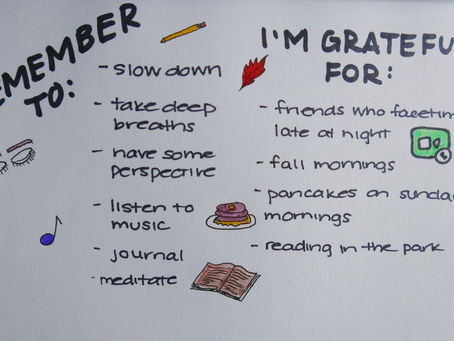 EMEMBER
TO:
- slow down
- take deep
breaths
- have some
perspective
- listen to
music
- journal
- meditate
I'M GRATEFU
FOR:
- friends who facetim
late at night
- fall mornings
- pancakes on sunda
mornings
- reading in the park